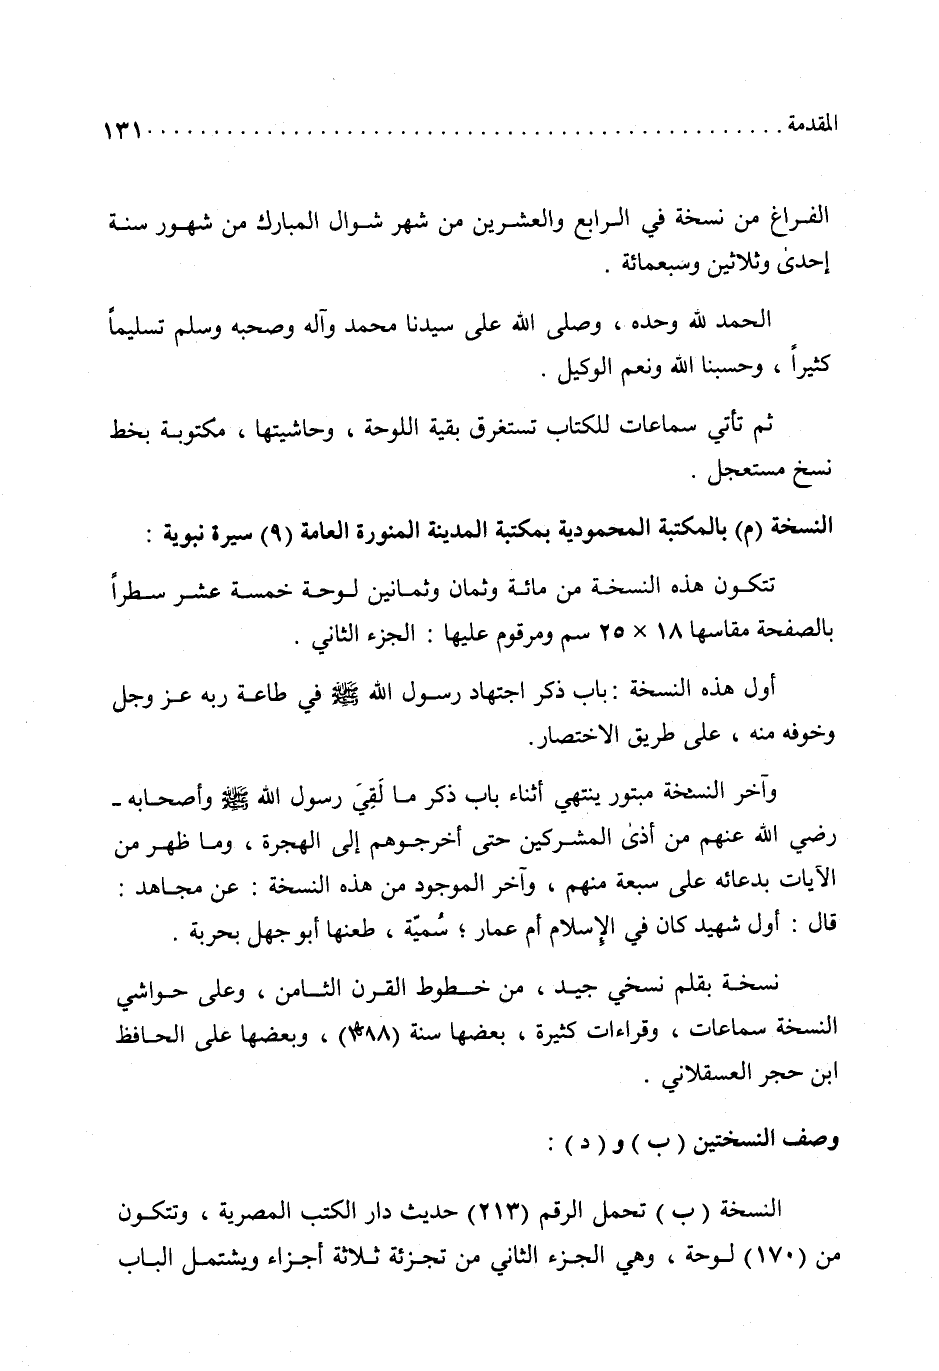 المقدمة ................................................ ١٣١
الفراغ من نسخة في الرابع والعشرين من شهر شوال المبارك من شهور سنة
إحدىٰ وثلاثين وسبعمائة .
الحمد لله وحده ، وصلى الله على سيدنا محمد وآله وصحبه وسلم تسليماً
كثيراً ، وحسبنا الله ونعم الوكيل .
ثم تأتي سماعات للكتاب تستغرق بقية اللوحة ، وحاشيتها ، مكتوبة بخط
نسخ مستعجل .
النسخة (م) بالمكتبة المحمودية بمكتبة المدينة المنورة العامة (٩) سيرة نبوية :
تتكون هذه النسخة من مائة وثمان وثمانين لوحة خمسة عشر سطراً
بالصفحة مقاسها ١٨ × ٢٥ سم ومرقوم عليها : الجزء الثاني .
أول هذه النسخة : باب ذكر اجتهاد رسول الله ﷺ في طاعة ربه عز وجل
وخوفه منه ، على طريق الاختصار.
وآخر النسخة مبتور ينتهي أثناء باب ذكر ما لَقِيَ رسول الله ﷺ وأصحابه ـ
رضي الله عنهم من أذىٰ المشركين حتى أخرجوهم إلى الهجرة ، وما ظهر من
الآيات بدعائه على سبعة منهم ، وآخر الموجود من هذه النسخة : عن مجاهد :
قال : أول شهيد كان في الإسلام أم عمار ؛ سُميّة ، طعنها أبو جهل بحربة .
نسخة بقلم نسخي جيد ، من خطوط القرن الثامن ، وعلى حواشي
النسخة سماعات ، وقراءات كثيرة ، بعضها سنة ، وبعضها على الحافظ
ابن حجر العسقلاني .
وصف النسختين ( ب ) و ( د ) :
النسخة ( ب ) تحمل الرقم (٢١٣) حديث دار الكتب المصرية ، وتتكون
من (١٧٠) لوحة ، وهي الجزء الثاني من تجزئة ثلاثة أجزاء ويشتمل الباب